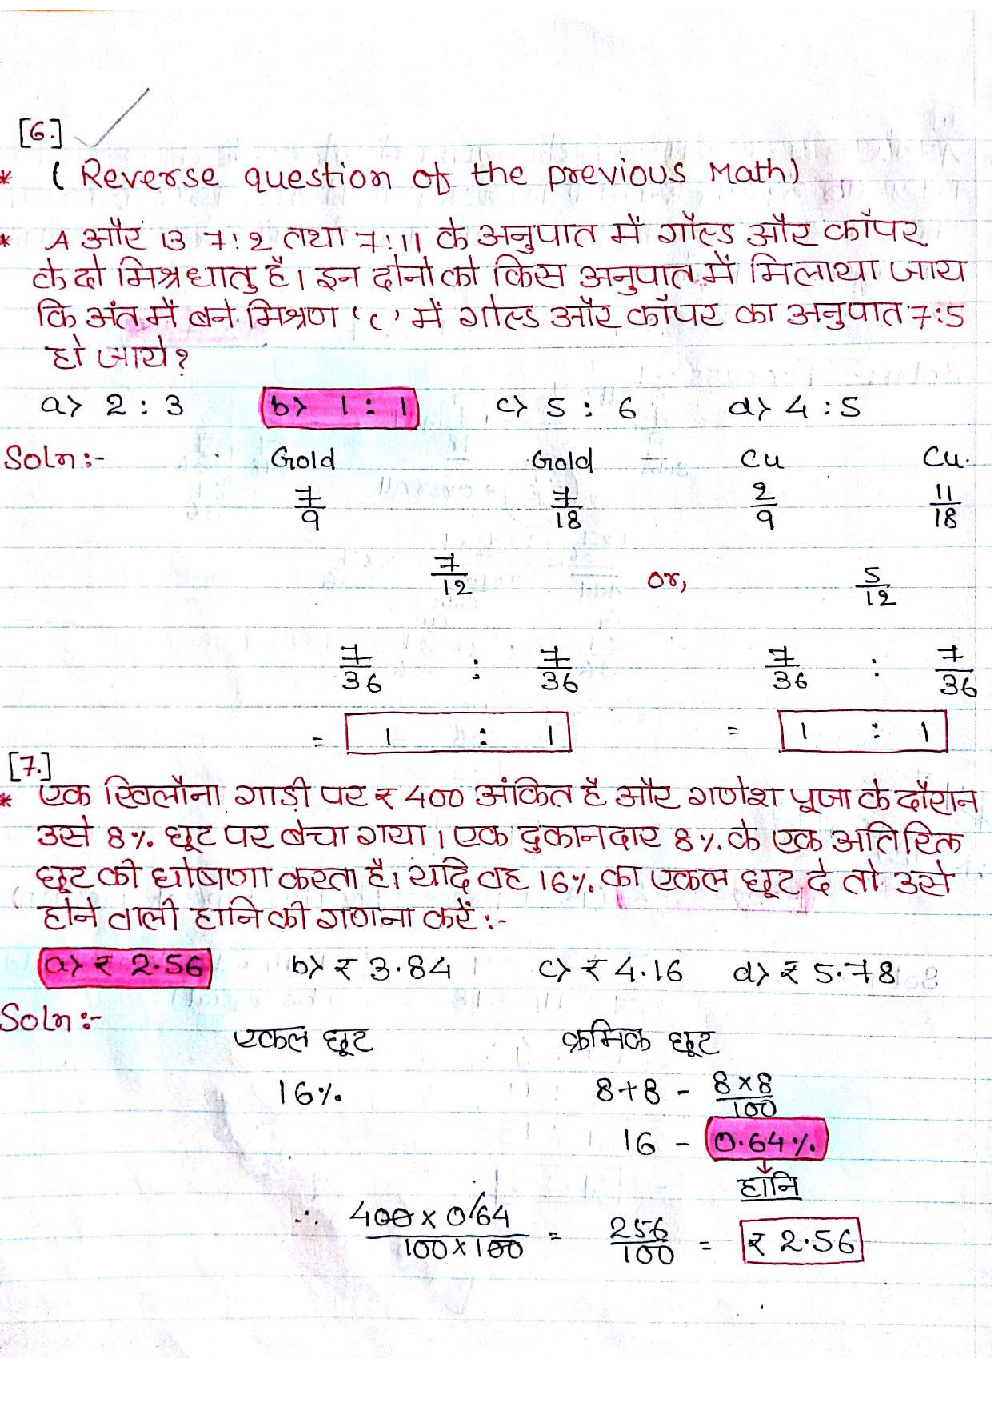 [6.]
* ( Reverse question of the previous Math)
* A और B 7:2 तथा 7:11 के अनुपात में गोल्ड और कॉपर
के दो मिश्रधातु है। इन दोनो को किस अनुपात में मिलाया जाय
कि अंत में बने मिश्रण 'C' में गोल्ड और कॉपर का अनुपात 7:5
हो जाये?
a> 2 : 3 b> 1 : 1 c> 5 : 6 d> 4 : 5
Soln:- Gold Gold Cu Cu.
7/9 7/18 2/9 11/18
7/12 or, 5/12
7/36 : 7/36 7/36 : 7/36
= 1 : 1 = 1 : 1
[7.]
* एक खिलौना गाड़ी पर ₹ 400 अंकित है और गणेश पूजा के दौरान
उसे 8% छूट पर बेचा गया। एक दुकानदार 8% के एक अतिरिक्त
छूट की घोषणा करता है। यदि वह 16% का एकल छूट दे तो उसे
होने वाली हानि की गणना करें:-
a> ₹ 2.56 b> ₹ 3.84 c> ₹ 4.16 d> ₹ 5.78
Soln:-
एकल छूट क्रमिक छूट
16% 8+8 - 8×8/100
16 - 0.64%
हाँनि
∴ 400 × 0/64 / 100 × 100 = 256/100 = ₹ 2.56